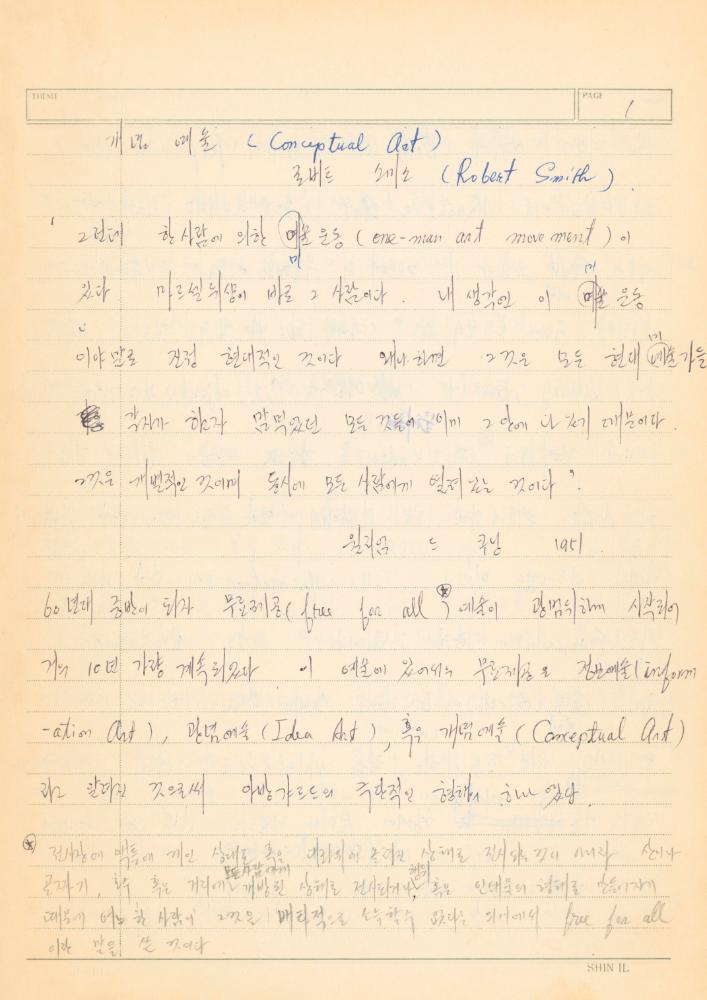 THEME
PAGE
1
개념 예술 (Conceptual Art)
로버트 스미스 (Robert Smith).
' 그런데 한 사람에 의한 예술 운동 (one-man art movement) 이
미
미
있다 마르셀 뒤샹이 바로 그 사람이다. 내 생각엔 이 예술 운동
미
이야말로 진정 현대적인 것이다 왜냐하면 그것은 모든 현대 예술가들
각자가 하고자 맘먹었던 모든 것들이 이미 그 안에 다 있기 때문이다.
그것은 개별적인 것이며 동시에 모든 사람에게 열려 있는 것이다 '.
윌리엄 드 쿠닝 1951.
60년대 중반이 되자 무료제공 (free for all)* 예술이 광범위하게 시작되어
거의 10년 가량 계속되었다 이 예술에 있어서의 무료제공은 정보예술 (Inform
-ation Art), 관념예술 (Idea Art), 혹은 개념예술 (Conceptual Art)
라고 알려진 것으로써 아방갸르드의 극단적인 형태의 하나였다.
* 전시장에 액틀에 끼인 상태로 혹은 올려진 상태로 전시되는 것이 아니라 산이나
모든 사람에게
골짜기, 호수 혹은 거리에 개방된 상태로 전시되거나, 혹은 인쇄물의 형태로 만들어지기
때문에 어느 한 사람이 그것을 배타적으로 소유할 수 없다는 의미에서 free for all
이란 말을 쓴 것이다.
SHIN IL